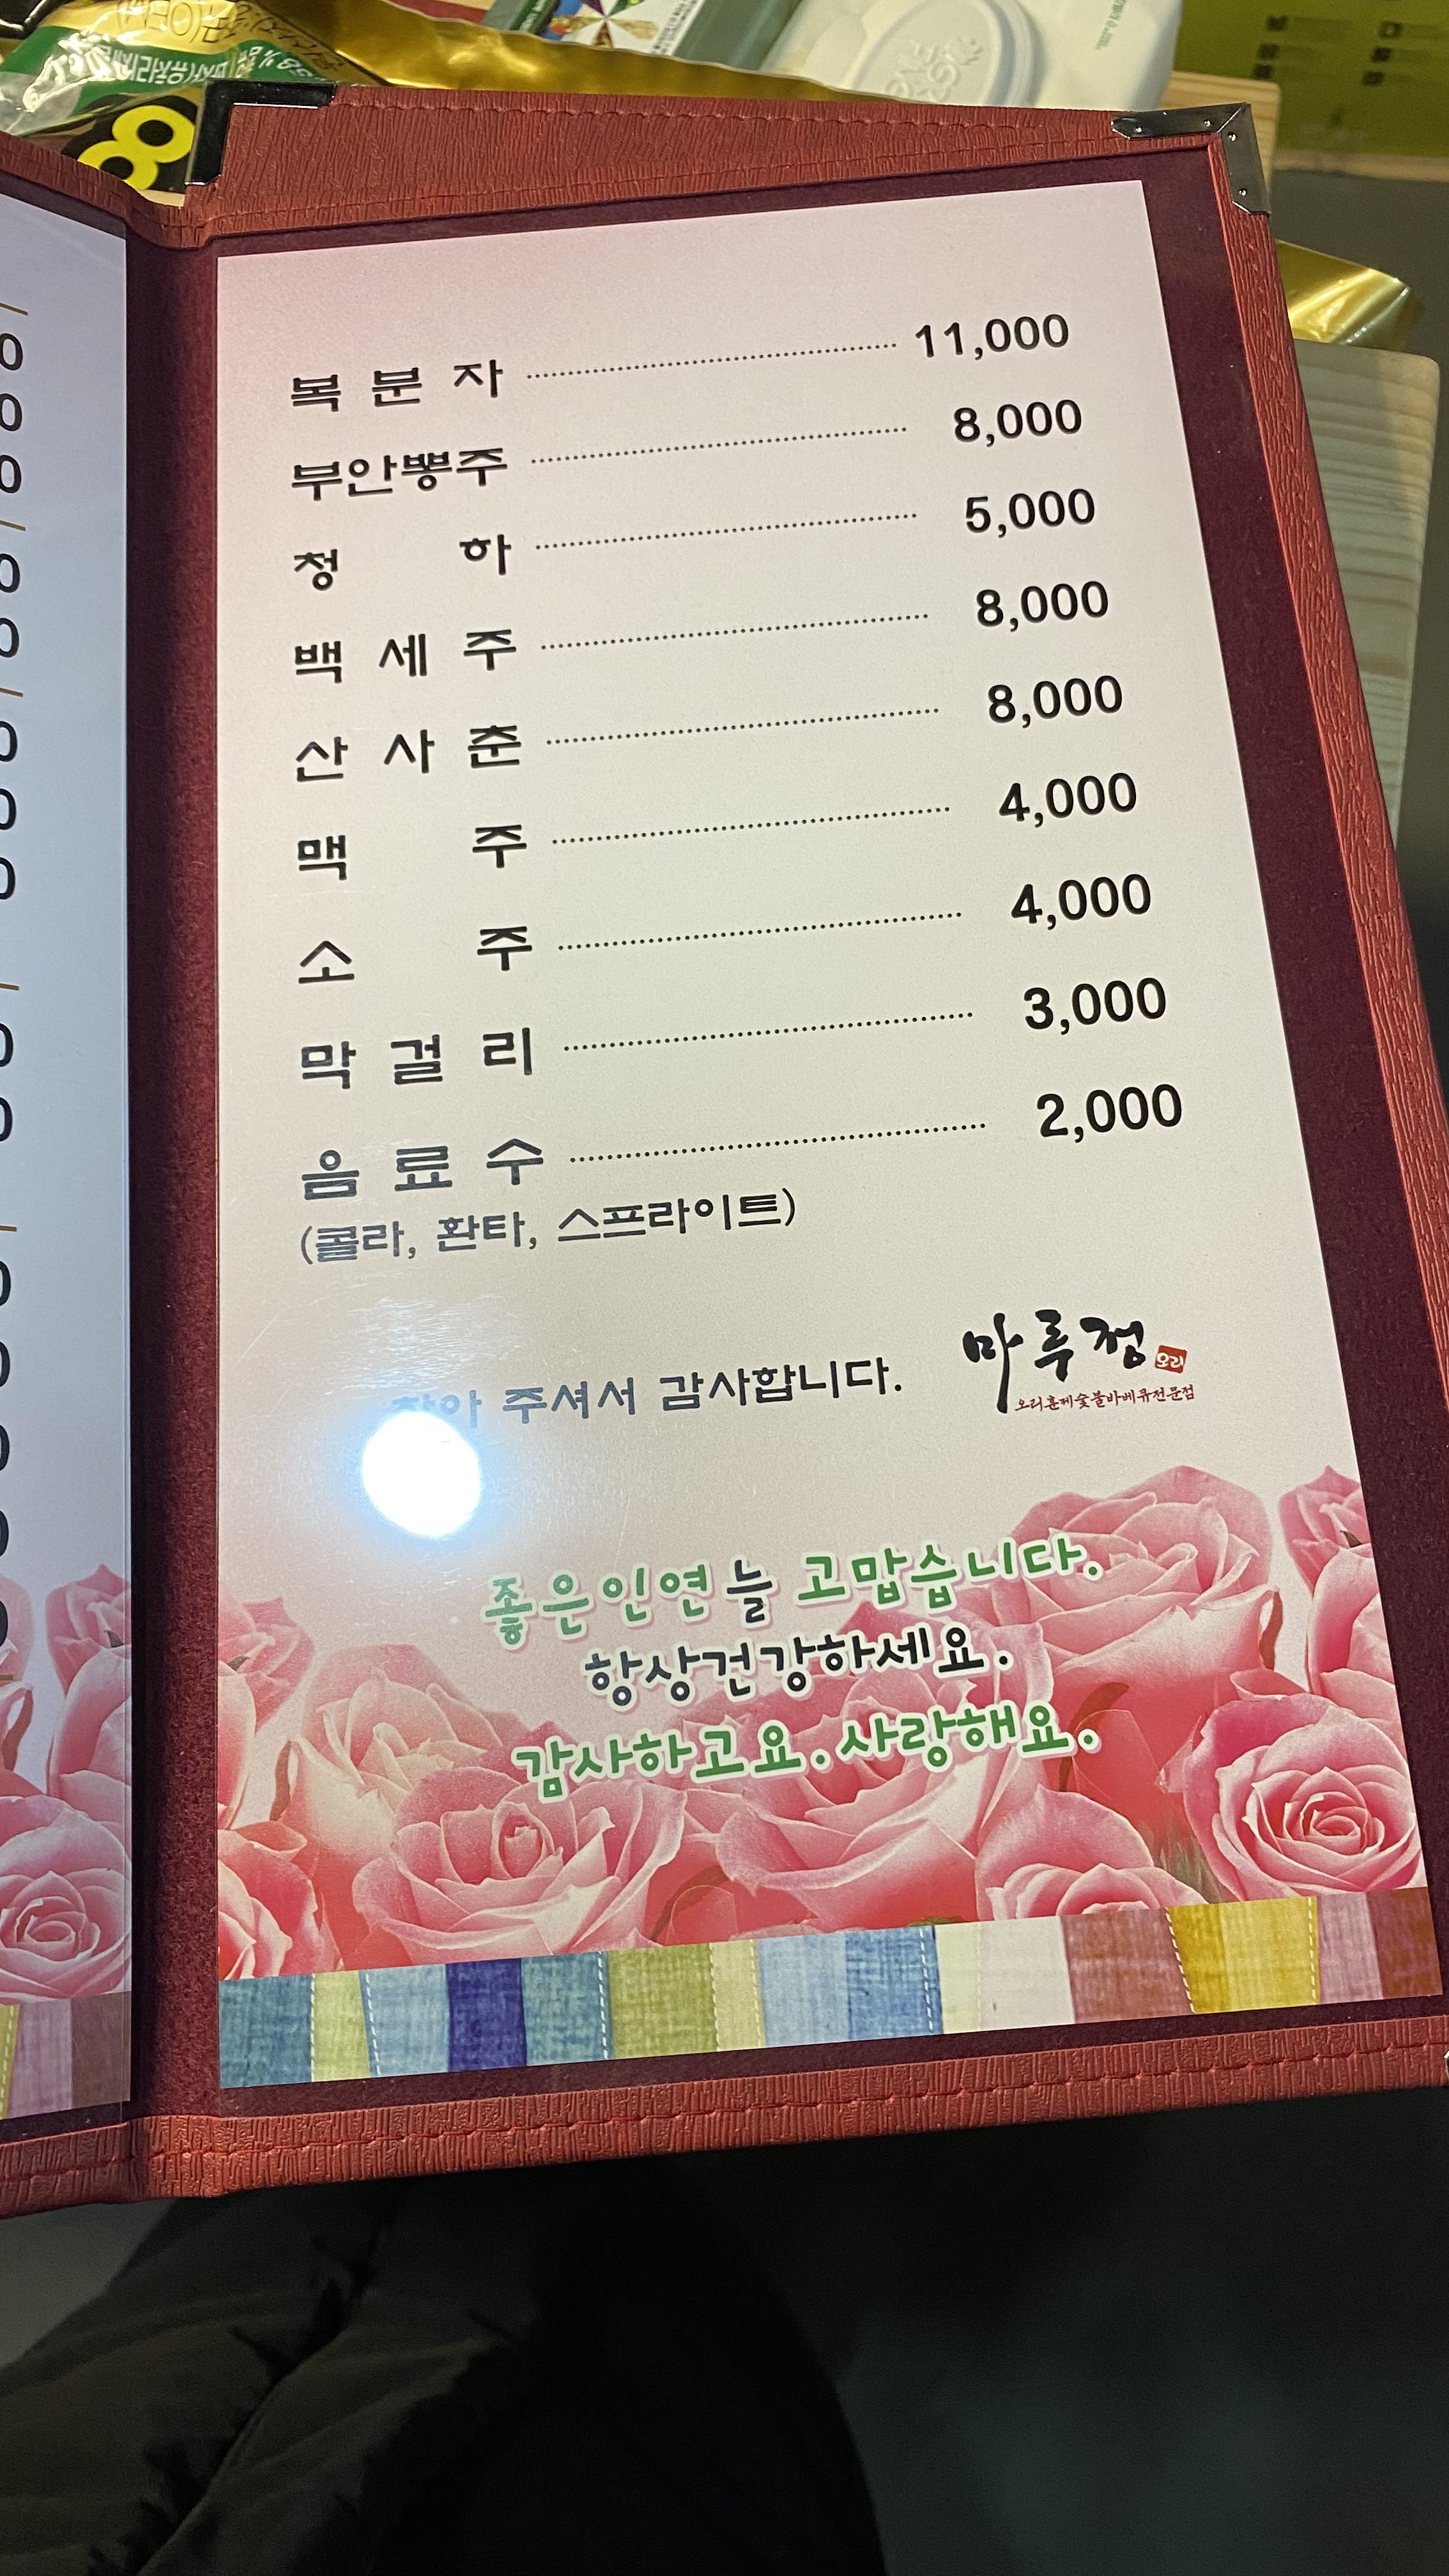 복분자 11,000
부안뽕주 8,000
청하 5,000
백세주 8,000
산사춘 8,000
맥주 4,000
소주 4,000
막걸리 3,000
음료수 2,000
(콜라, 환타, 스프라이트)
찾아 주셔서 감사합니다.
마루청 오리
오리훈제숯불바베큐전문점
좋은인연늘 고맙습니다.
항상건강하세요.
감사하고요.사랑해요.